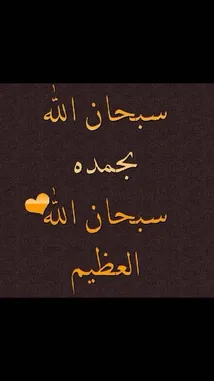 سبحان الله
بحمده
سبحان الله
العظيم